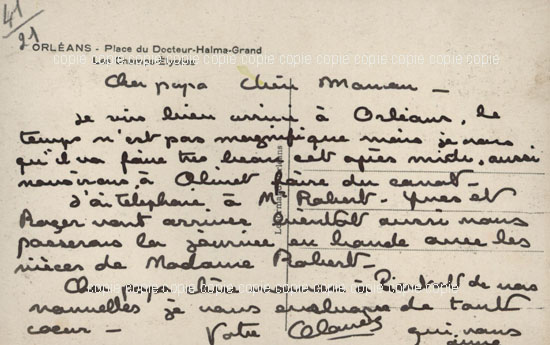 41/21
ORLÉANS - Place du Docteur-Halma-Grand
copie copie copie copie copie copie copie copie copie copie
Cher papa Chère Maman -
Je suis bien arrivé à Orléans, le
temps n'est pas magnifique mais je crois
qu'il va faire très beau cet après midi, aussi
nous irons à Olivet faire du canot -
J'ai téléphoné à Mr Robert - Yves et
Roger vont arriver bientôt aussi nous
passerons la journée en bande avec les
nièces de Madame Robert -
Cher papa chère maman à de vos
copie copie copie copie copie copie copie copie copie copie
nouvelles je vous embrasse de tout
coeur - Votre qui vous
aime
copie copie copie copie copie copie copie copie copie copie